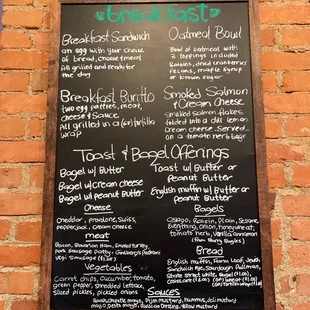 breakfast
Breakfast Sandwich
an egg with your choice
of bread, cheese & meat
All grilled and ready for
the day
Oatmeal Bowl
Bowl of oatmeal with
2 toppings included
Raisins, dried cranberries
pecans, maple syrup
or brown sugar
Breakfast Burrito
two egg patties, meat,
cheese & sauce
All grilled in a (GF) tortilla
wrap
Smoked Salmon
& Cream Cheese
Smoked Salmon flakes
folded into a dill lemon
cream cheese. Served
on a tomato herb bagel
Toast & Bagel Offerings
Bagel w/ Butter
Bagel w/ cream cheese
Bagel w/ Peanut Butter
Toast w/ Butter or
Peanut Butter
English muffin w/ Butter or
Peanut Butter
Cheese
Cheddar, provolone, swiss,
pepperjack, cream cheese
meat
Bacon, Bavarian Ham, Smoked turkey,
pork sausage patty
vegi sausage
Vegetables
Carrot chips, cucumber, tomato,
green pepper, shredded lettuce,
sliced pickles, pickled onions
Bagels
Asiago, Raisin, Plain, Sesame
Everything, onion, honeywheat,
tomato herb, Vanilla cinnamon
Bread
English muffin, Farm Loaf, South
Sandwich
Sourdough, Pullman,
Sauces
Dijon Mustard, Hummus, dill mustard